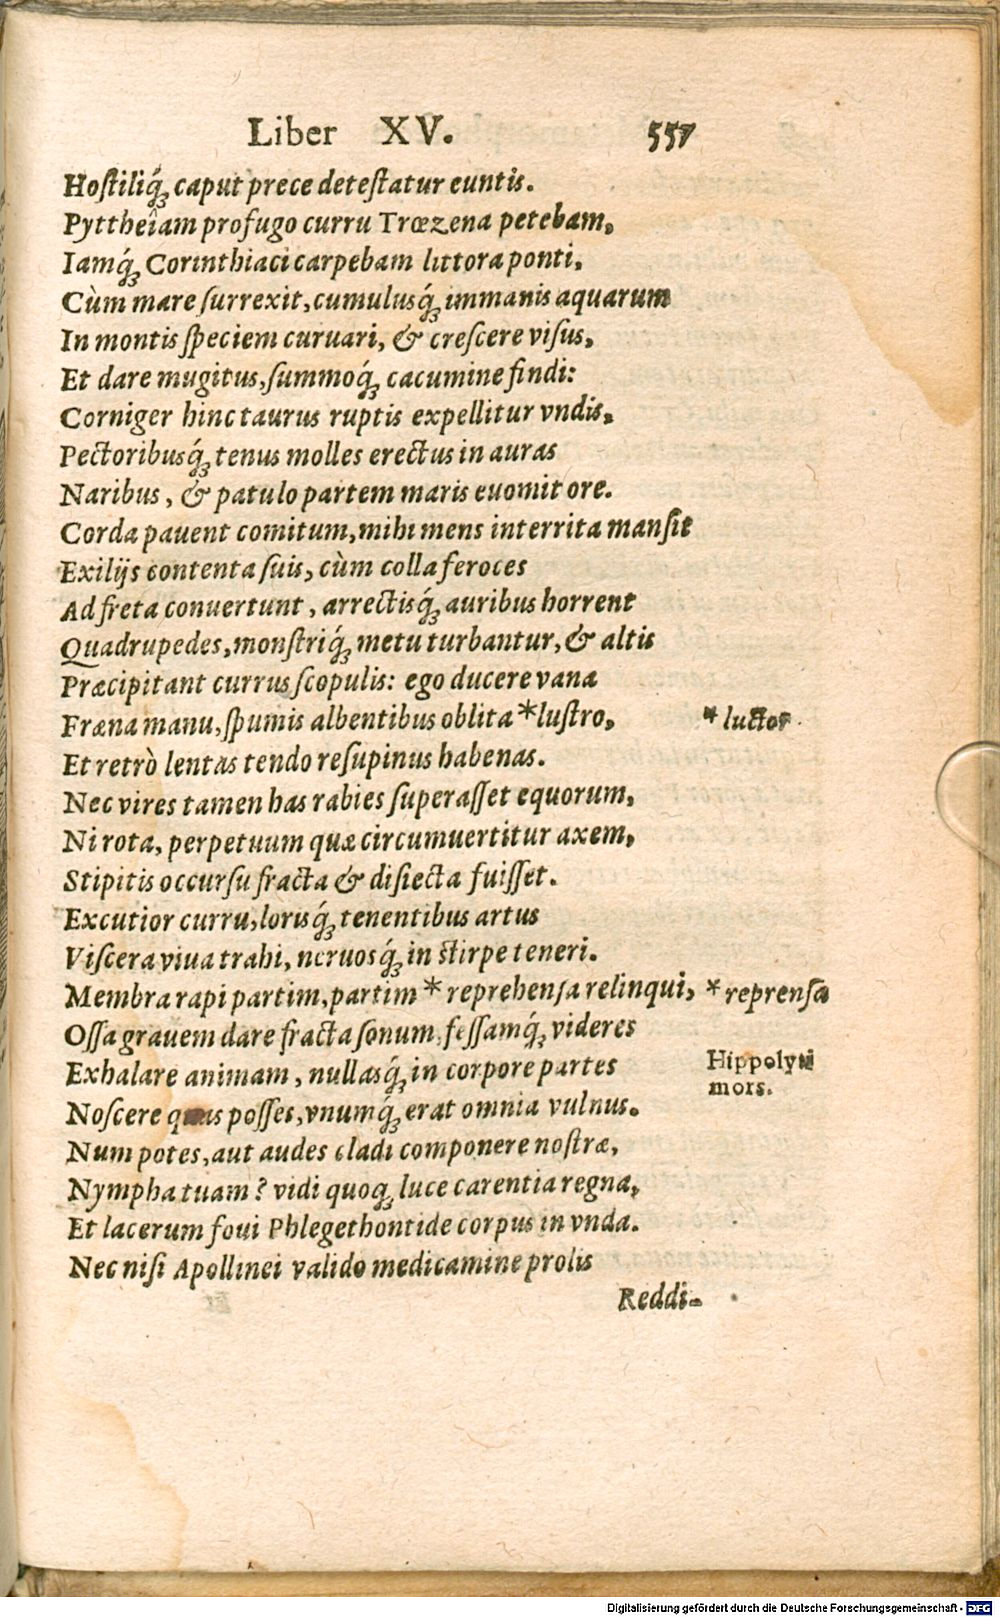 Liber XV. 557
Hoſtiliq́; caput prece deteſtatur euntis.
Pyttheîam profugo curru Trœzena petebam,
Iamq́; Corinthiaci carpebam littora ponti,
Cùm mare ſurrexit, cumulusq́; immanis aquarum
In montis ſpeciem curuari, & creſcere viſus,
Et dare mugitus, ſummoq́; cacumine findi:
Corniger hinc taurus ruptis expellitur vndis,
Pectoribusq́; tenus molles erectus in auras
Naribus, & patulo partem maris euomit ore.
Corda pauent comitum, mihi mens interrita manſit
Exilijs contenta ſuis, cùm colla feroces
Ad freta conuertunt, arrectisq́; auribus horrent
Quadrupedes, monſtriq́; metu turbantur, & altis
Præcipitant currus ſcopulis: ego ducere vana
Fræna manu, ſpumis albentibus oblita *luſtro, * luctor
Et retrò lentas tendo reſupinus habenas.
Nec vires tamen has rabies ſuperaſſet equorum,
Ni rota, perpetuum quæ circumuertitur axem,
Stipitis occurſu fracta & diſiecta fuiſſet.
Excutior curru, lorisq́; tenentibus artus
Viſcera viua trahi, neruosq́; in ſtirpe teneri.
Membra rapi partim, partim * reprehenſa relinqui, * reprenſa
Oſſa grauem dare fracta ſonum, feſſamq́; videres
Exhalare animam, nullasq́; in corpore partes
Hippolyti
mors.
Noſcere quas poſſes, vnumq́; erat omnia vulnus.
Num potes, aut audes cladi componere noſtræ,
Nympha tuam? vidi quoq; luce carentia regna,
Et lacerum foui Phlegethontide corpus in vnda.
Nec niſi Apollinei valido medicamine prolis
Reddi-
Digitalisierung gefördert durch die Deutsche Forschungsgemeinschaft - DFG